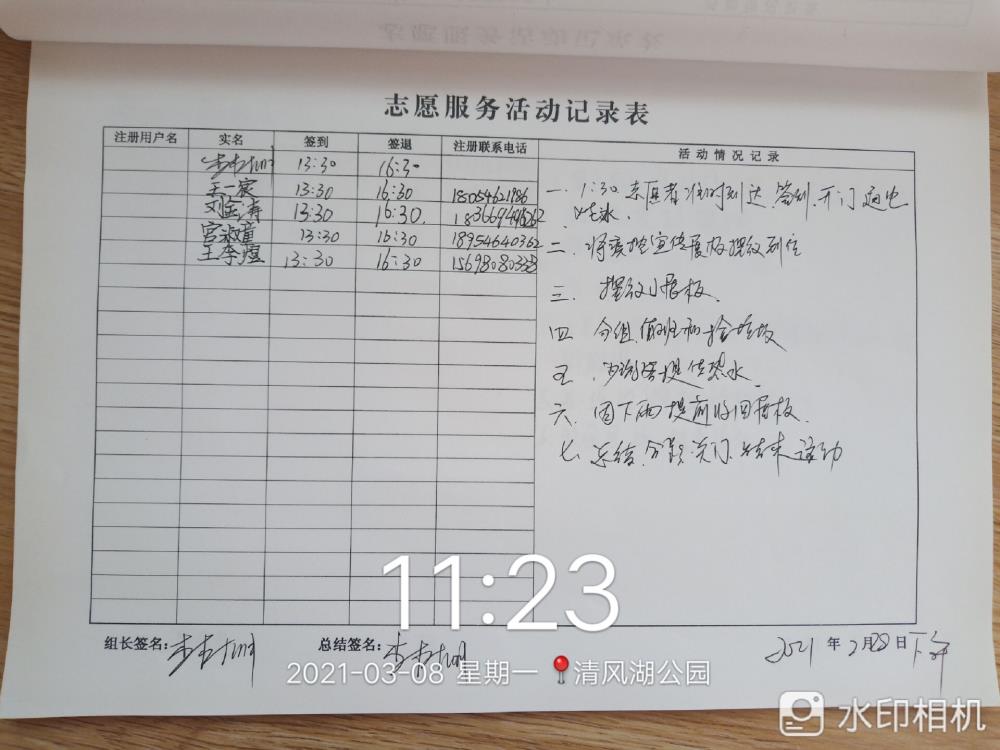 志愿服务活动记录表
注册用户名 实名 签到 签退 注册联系电话 活动情况记录
13:30 16:30
王一家 13:30 16:30 18054621986
刘金涛 13:30 16:30.
宫淑童 13:30 16:30 18954640362
王李煜 13:30 16:30
一. 1:30.志愿者准时到达,签到,开门通电
烧水.
二.将疫控宣传展板摆放到位
三.摆放小展板.
四 分组值班和捡垃圾
五. 提供热水.
六.因下雨提前收回展板.
七.总结,合影,关门,结束活动
11:23
组长签名: 总结签名: 2021年2月28日下午
2021-03-08 星期一 清风湖公园
水印相机